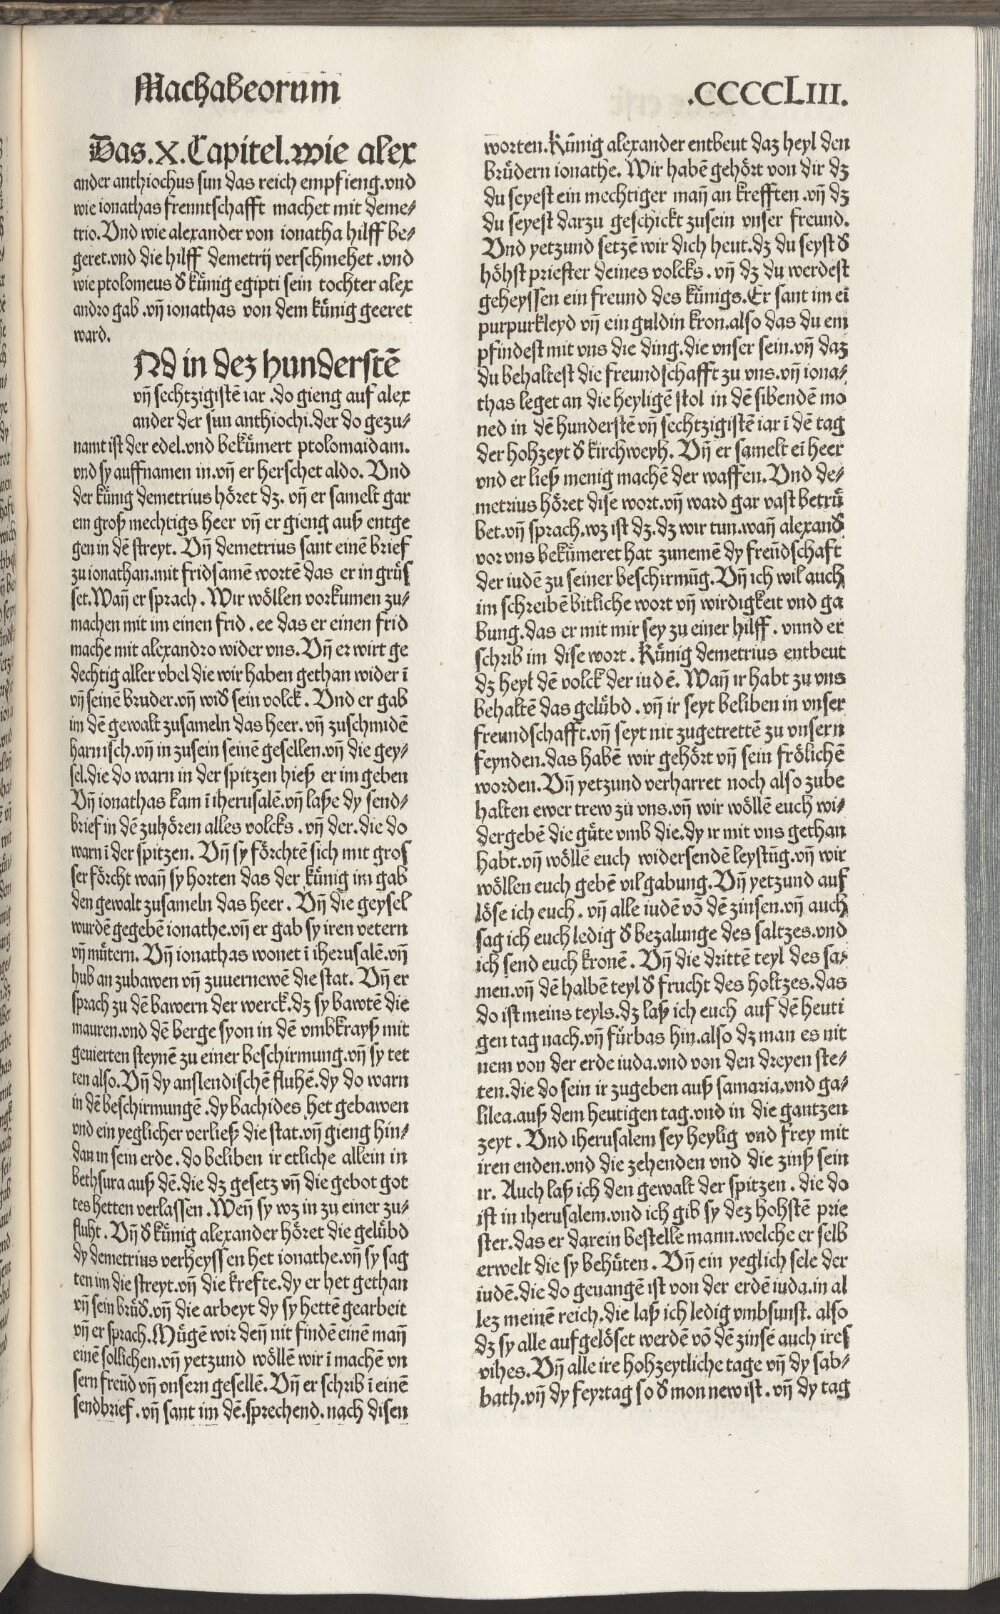 Machabeorum
.CCCCLIII.
Das.X.Capitel.wie alex
ander anthiochus sun das reich empfieng.vnd
wie ionathas freuntschafft machet mit deme⸗
trio.Vnd wie alexander von ionatha hilff be⸗
geret.vnd die hilff demetrij verschmehet .vnd
wie ptolomeus d̕ kůnig egipti sein tochter alex
andro gab .vñ ionathas von dem kůnig geeret
ward.
Nd in dez hunderstē
vñ sechtzigistē iar .do gieng auf alex
ander der sun anthiochi.der do gezu⸗
namt ist der edel.vnd bekůmert ptolomaidam.
vnd sy auffnamen in.vñ er herschet aldo. Vnd
der kůnig demetrius hôret dz. vñ er samelt gar
ein groß mechtigs heer vñ er gieng auß entge
gen in dē streyt. Vñ demetrius sant einē brief
zu ionathan.mit fridsamē wortē das er in grůs
set.Wañ er sprach . Wir wôllen vorkumen zu⸗
machen mit im einen frid . ee das er einen frid
mache mit alexandro wider vns. Vñ er wirt ge
dechtig aller vbel die wir haben gethan wider ī
vñ seinē bruder.vñ wid̕ sein volck . Vnd er gab
im dē gewalt zusameln das heer. vñ zuschmidē
harnisch.vñ in zusein seinē gesellen.vñ die gey⸗
sel.die do warn in der spitzen hieß er im geben
Vñ ionathas kam ī iherusalē.vñ laße dy send⸗
brief in dē zuhôren alles volcks . vñ der. die do
warn ī der spitzen. Vñ sy fôrchtē sich mit gros
ser fôrcht wañ sy horten das der kůnig im gab
den gewalt zusameln das heer. Vñ die geysel
wurdē gegebē ionathe.vñ er gab sy iren vetern
vñ můtern. Vñ ionathas wonet ī iherusalē.vñ
hub an zubawen vñ zuuernewē die stat. Vñ er
sprach zu dē bawern der werck.dz sy bawtē die
mauren.vnd dē berge syon in dē vmbkrayß mit
geuierten steynē zu einer beschirmung.vñ sy tet
ten also.Vñ dy auslendischē fluhē.dy do warn
in dē beschirmungē .dy bachides het gebawen
vnd ein yeglicher verließ die stat.vñ gieng hin⸗
dan in sein erde . do beliben ir etliche allein in
bethsura auß dē.die dz gesetz vñ die gebot got
tes hetten verlassen . Weñ sy wz in zu einer zu⸗
fluht . Vñ d̕ kůnig alexander hôret die gelůbd
dy demetrius verheyssen het ionathe.vñ sy sag
ten im die streyt.vñ die krefte.dy er het gethan
vñ sein brůd̕.vñ die arbeyt dy sy hettē gearbeit
vñ er sprach.Můgē wir deñ nit findē einē mañ
einē sollichen.vñ yetzund wôllē wir ī machē vn
sern freūd vñ vnsern gesellē. Vñ er schrib ī einē
sendbrief . vñ sant im dē.sprechend. nach disen
worten.Kůnig alexander entbeut daz heyl den
brůdern ionathe. Wir habē gehôrt von dir dz
du seyest ein mechtiger mañ an krefften .vñ dz
du seyest darzu geschickt zusein vnser freund.
Vnd yetzund setzē wir dich heut.dz du seyst d̕
hôhst priester deines volcks . vñ dz du werdest
geheyssen ein freund des kůnigs.Er sant im eī
purpurkleyd vñ ein guldin kron.also das du em
pfindest mit vns die ding.die vnser sein.vñ daz
du behaltest die freundschafft zu vns.vñ iona⸗
thas leget an die heyligē stol in dē sibendē mo
ned in dē hunderstē vñ sechtzigistē iar ī dē tag
der hohzeyt d̕ kirchweyh. Vñ er samelt eī heer
vnd er ließ menig machē der waffen. Vnd de⸗
metrius hôret dise wort.vñ ward gar vast betrů
bet.vñ sprach.wz ist dz.dz wir tun.wañ alexand̕
vor vns bekůmeret hat zunemē dy freūdschaft
der iudē zu seiner beschirmūg. Vñ ich wil auch
im schreibē bitliche wort vñ wirdigkeit vnd ga
bung.das er mit mir sey zu einer hilff . vnnd er
schrib im dise wort . Kůnig demetrius entbeut
dz heyl dē volck der iudē. Wañ ir habt zu vns
behaltē das gelůbd . vñ ir seyt beliben in vnser
freundschafft.vñ seyt nit zugetrettē zu vnsern
feynden.das habē wir gehôrt vñ sein frôlichē
worden. Vñ yetzund verharret noch also zube
halten ewer trew zů vns.vñ wir wôllē euch wi⸗
dergebē die gůte vmb die.dy ir mit vns gethan
habt.vñ wôllē euch widersendē leystūg.vñ wir
wôllen euch gebē vil gabung. Vñ yetzund auf
lôse ich euch . vñ alle iudē vō dē zinsen.vñ auch
sag ich euch ledig d̕ bezalunge des saltzes.vnd
ich send euch kronē . Vñ die drittē teyl des sa⸗
men.vñ dē halbē teyl d̕ frucht des holtzes.das
do ist meins teyls.dz laß ich euch auf dē heuti
gen tag nach.vñ fůrbas hin.also dz man es nit
nem von der erde iuda.vnd von den dreyen ste⸗
ten.die do sein ir zugeben auß samaria.vnd ga⸗
lilea.auß dem heutigen tag.vnd in die gantzen
zeyt . Vnd iherusalem sey heylig vnd frey mit
iren enden.vnd die zehenden vnd die zinß sein
ir. Auch laß ich den gewalt der spitzen . die do
ist in iherusalem.vnd ich gib sy dez hohstē prie
ster.das er darein bestelle mann.welche er selb
erwelt die sy behůten . Vñ ein yeglich sele der
iudē.die do geuangē ist von der erdē iuda.in al
lez meinē reich.die laß ich ledig vmbsunst. also
dz sy alle aufgelôset werdē vō dē zinsē auch ires
vihes. Vñ alle ire hohzeytliche tage vñ dy sab⸗
bath.vñ dy feyrtag so d̕ mon new ist . vñ dy tag